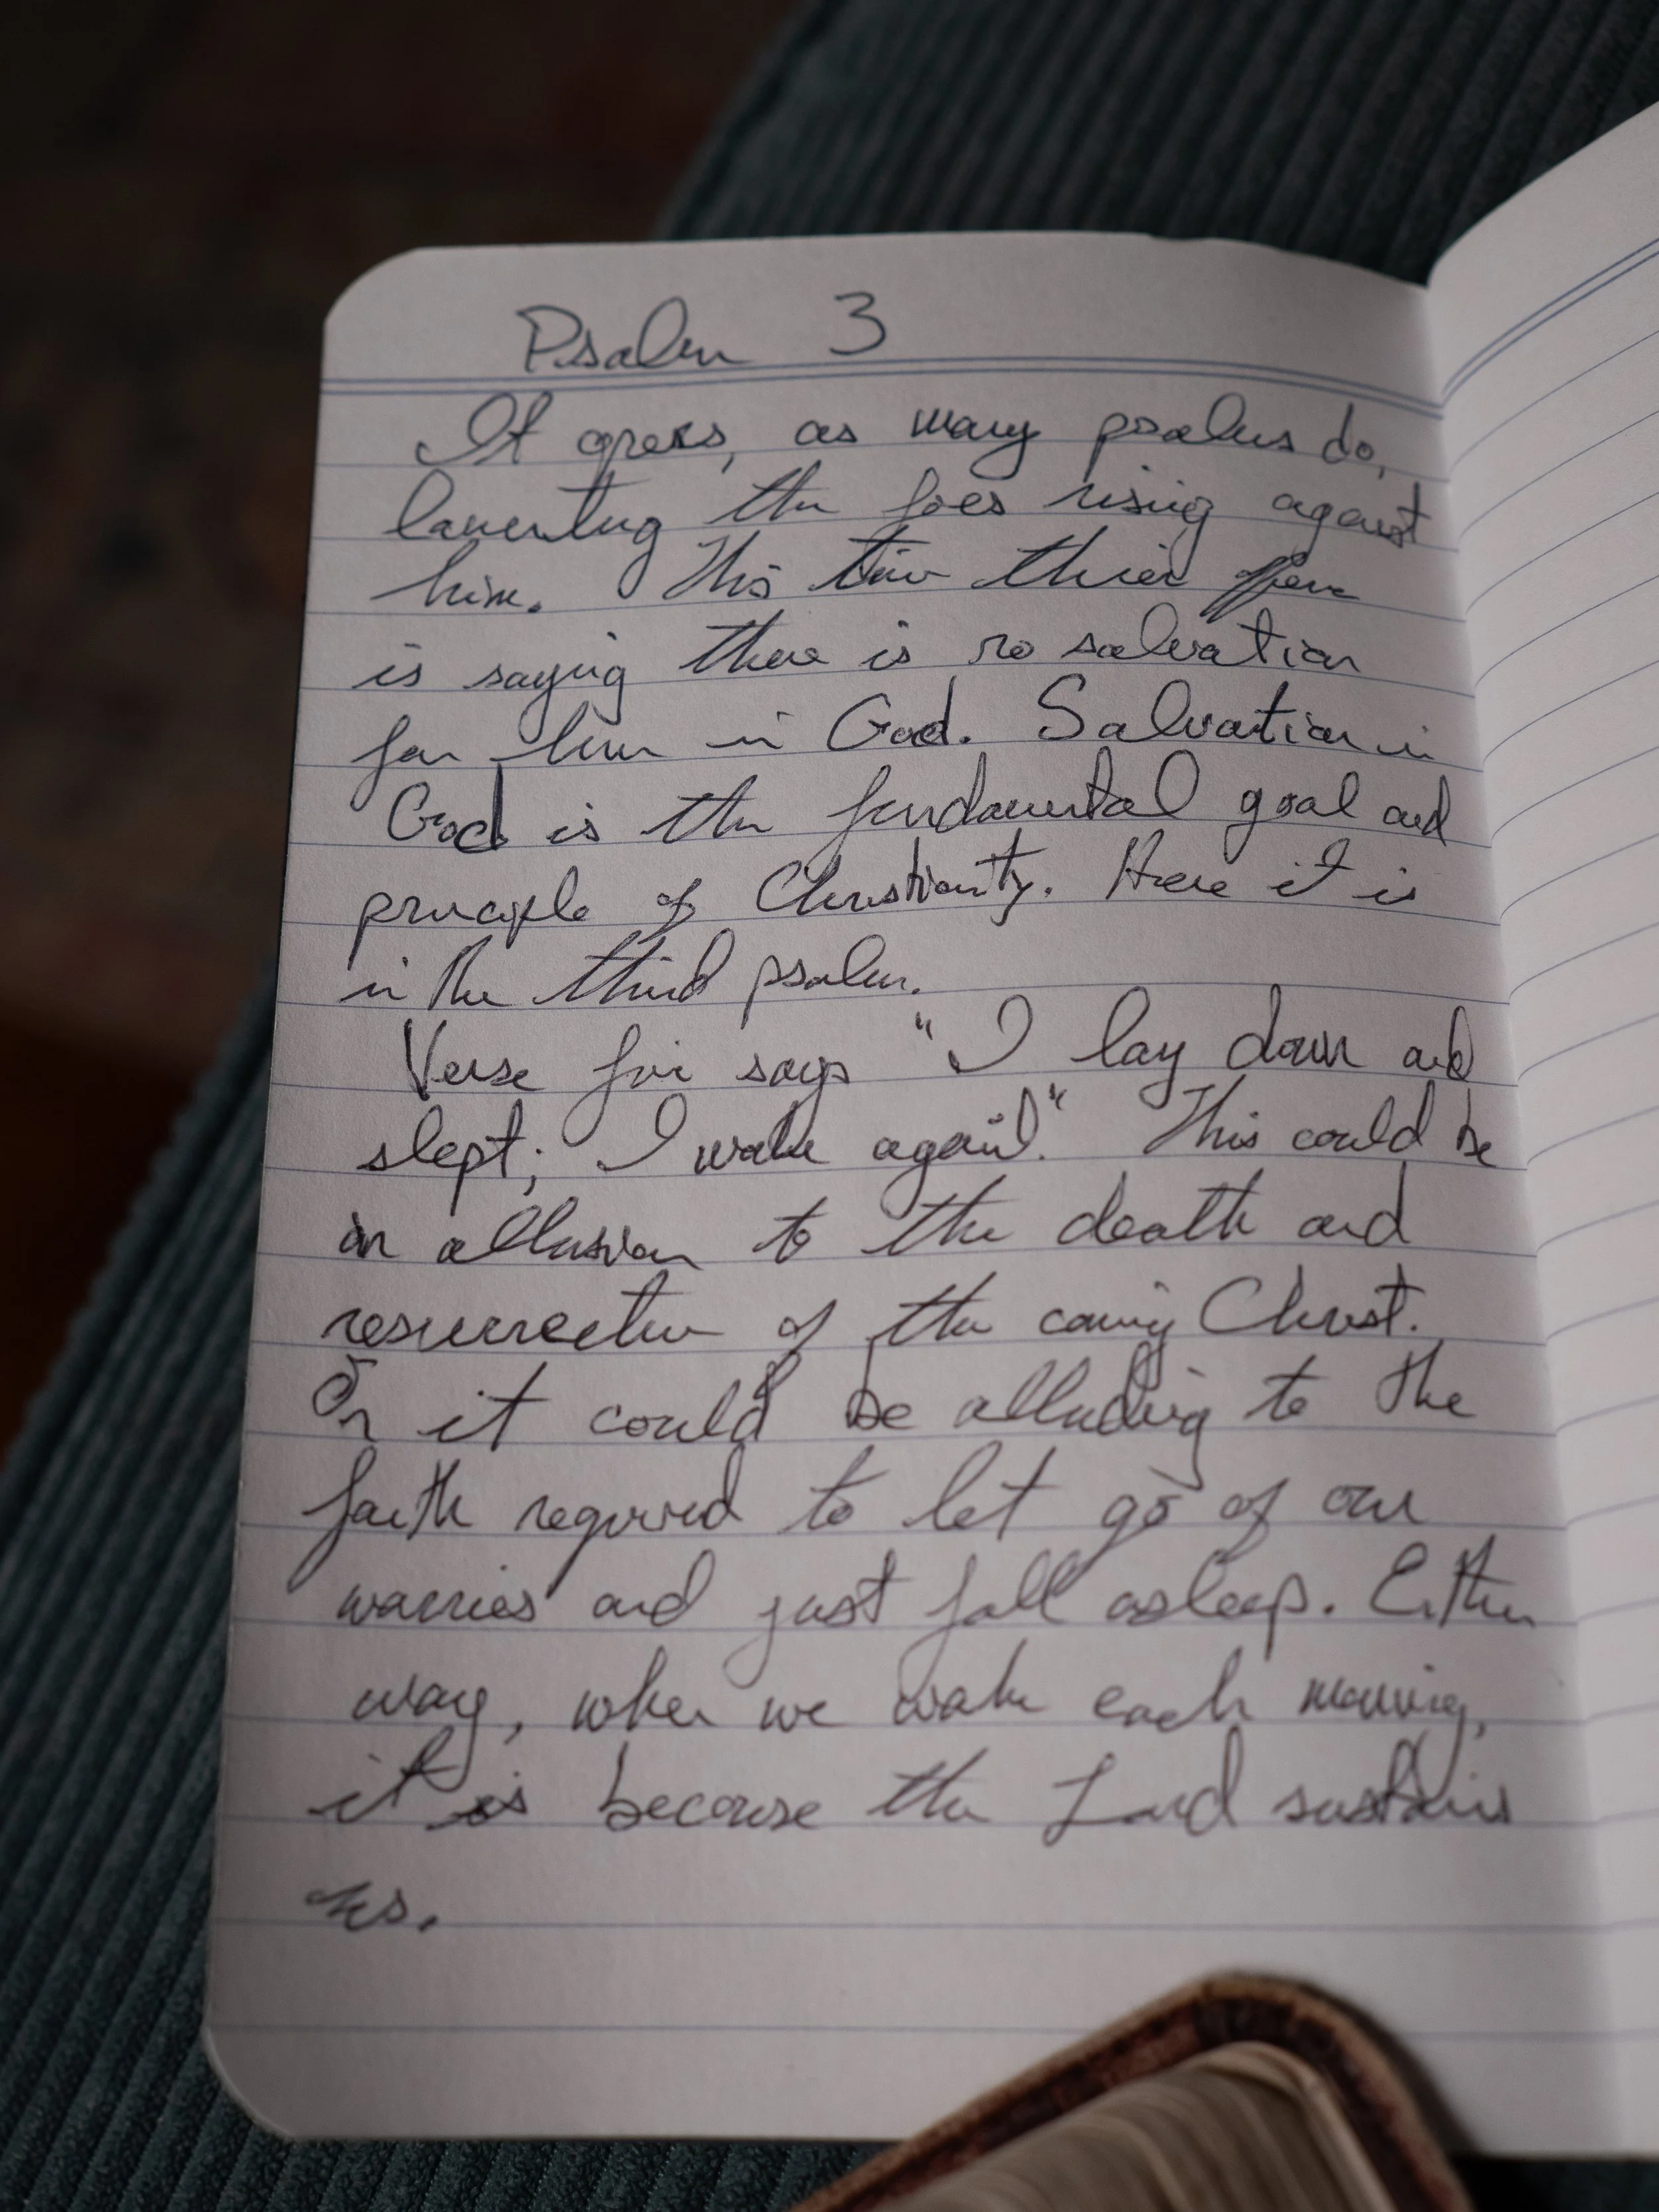 Psalm 3
It opens, as many psalms do,
lamenting the foes rising against
him. This time thier
is saying there is no salvation
for him in God. Salvation in
God is the fundamental goal and
principle of Christianity. Here it is
in the third psalm.
Verse five says "I lay down and
slept; I wake again". This could be
an allusion to the death and
resurrection of the coming Christ.
Or it could be alluding to the
faith required to let go of our
worries and just fall asleep. Either
way, when we wake each morning,
it is because the Lord sustains
us.